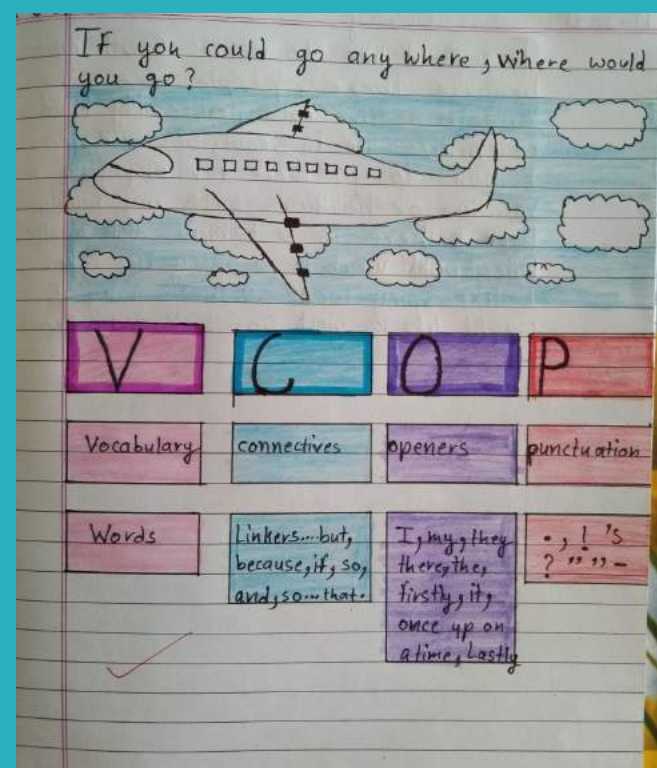 If you could go any where, Where would
you go?
V C O P
Vocabulary connectives openers punctuation
Words
Linkers....but,
because, if, so,
and, so...that.
I, my, they
there, the,
firstly, it,
once up on
a time, Lastly
. , ! 's
? ,, ,, -